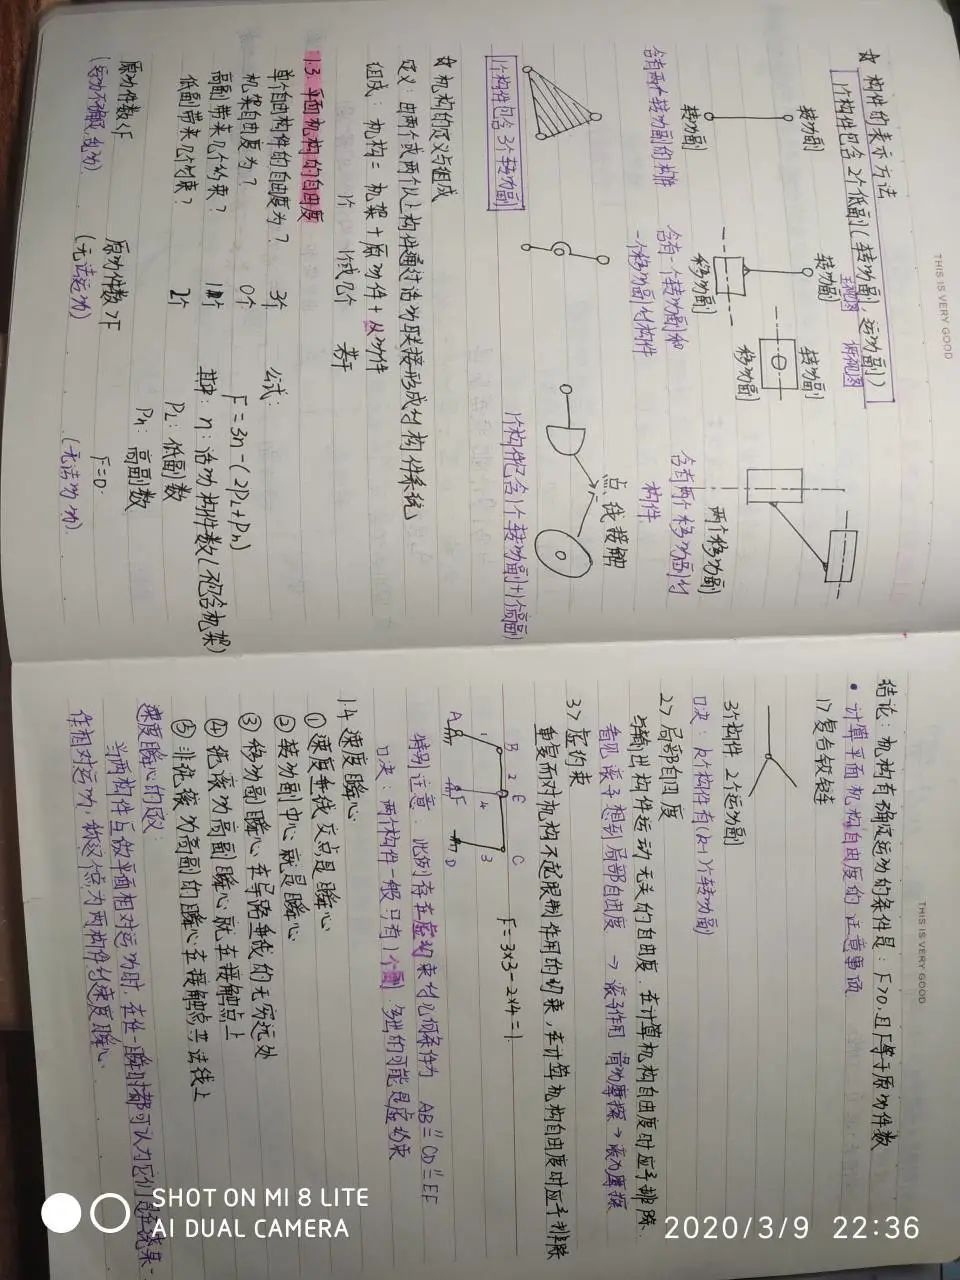 THIS IS VERY GOOD
☆ 构件的表示方法
1个构件包含2个低副(转动副,运动副)
主视图 俯视图
转动副
转动副
转动副
移动副
转动副
移动副
两个移动副
含有两个转动副的构件
含有一个转动副和
一个移动副的构件
含有两个移动副的
构件
点、线接触
1个构件包含3个转动副
1个构件包含1个转动副+1个高副
☆ 机构的定义与组成
定义:由两个或两个以上构件通过活动联接形成的构件系统
组成:机构=机架+原动件+从动件
1个 1个或几个 若干
1.3. 平面机构的自由度
单个自由构件的自由度为? 3个
机架自由度为? 0个
高副带来几个约束? 1个
低副带来几个约束? 2个
公式:
F=3n-(2PL+Pn)
其中:n:活动构件数(不包含机架)
PL:低副数
Pn:高副数
原动件数<F
(运动不确定,乱动)
原动件数>F
(无法运动)
F=0.
(无法动).
THIS IS VERY GOOD
结论:机构有确定运动的条件是:F>0.且F等于原动件数
• 计算平面机构自由度的注意事项
1> 复合铰链
3个构件 2个运动副
口决:k个构件有(k-1)个转动副
2> 局部自由度
与输出构件运动无关的自由度.在计算机构自由度时应予排除.
看见滚子想到局部自由度 → 滚子作用 滑动摩擦→滚动摩擦
3> 虚约束
重复而对机构不起限制作用的约束,在计算机构自由度时应予排除
B 2 E C
1 4 3
A F D
F=3×3-2×4=1
特别注意:此例存在虚约束的几何条件为 AB∥CD∥EF
口决:两构件一般只有1个副.多出的可能是虚约束
1.4 速度瞬心
① 速度垂线交点是瞬心
② 转动副中心就是瞬心
③ 移动副瞬心在导路垂线的无穷远处
④ 纯滚动高副瞬心就在接触点上
⑤ 非纯滚动高副的瞬心在接触点公法线上
速度瞬心的定义:
当两构件互做平面相对运动时.在任一瞬时都可认为它们是在绕某一
作相对运动,称这个点为两构件的速度瞬心
SHOT ON MI 8 LITE
AI DUAL CAMERA
2020/3/9 22:36